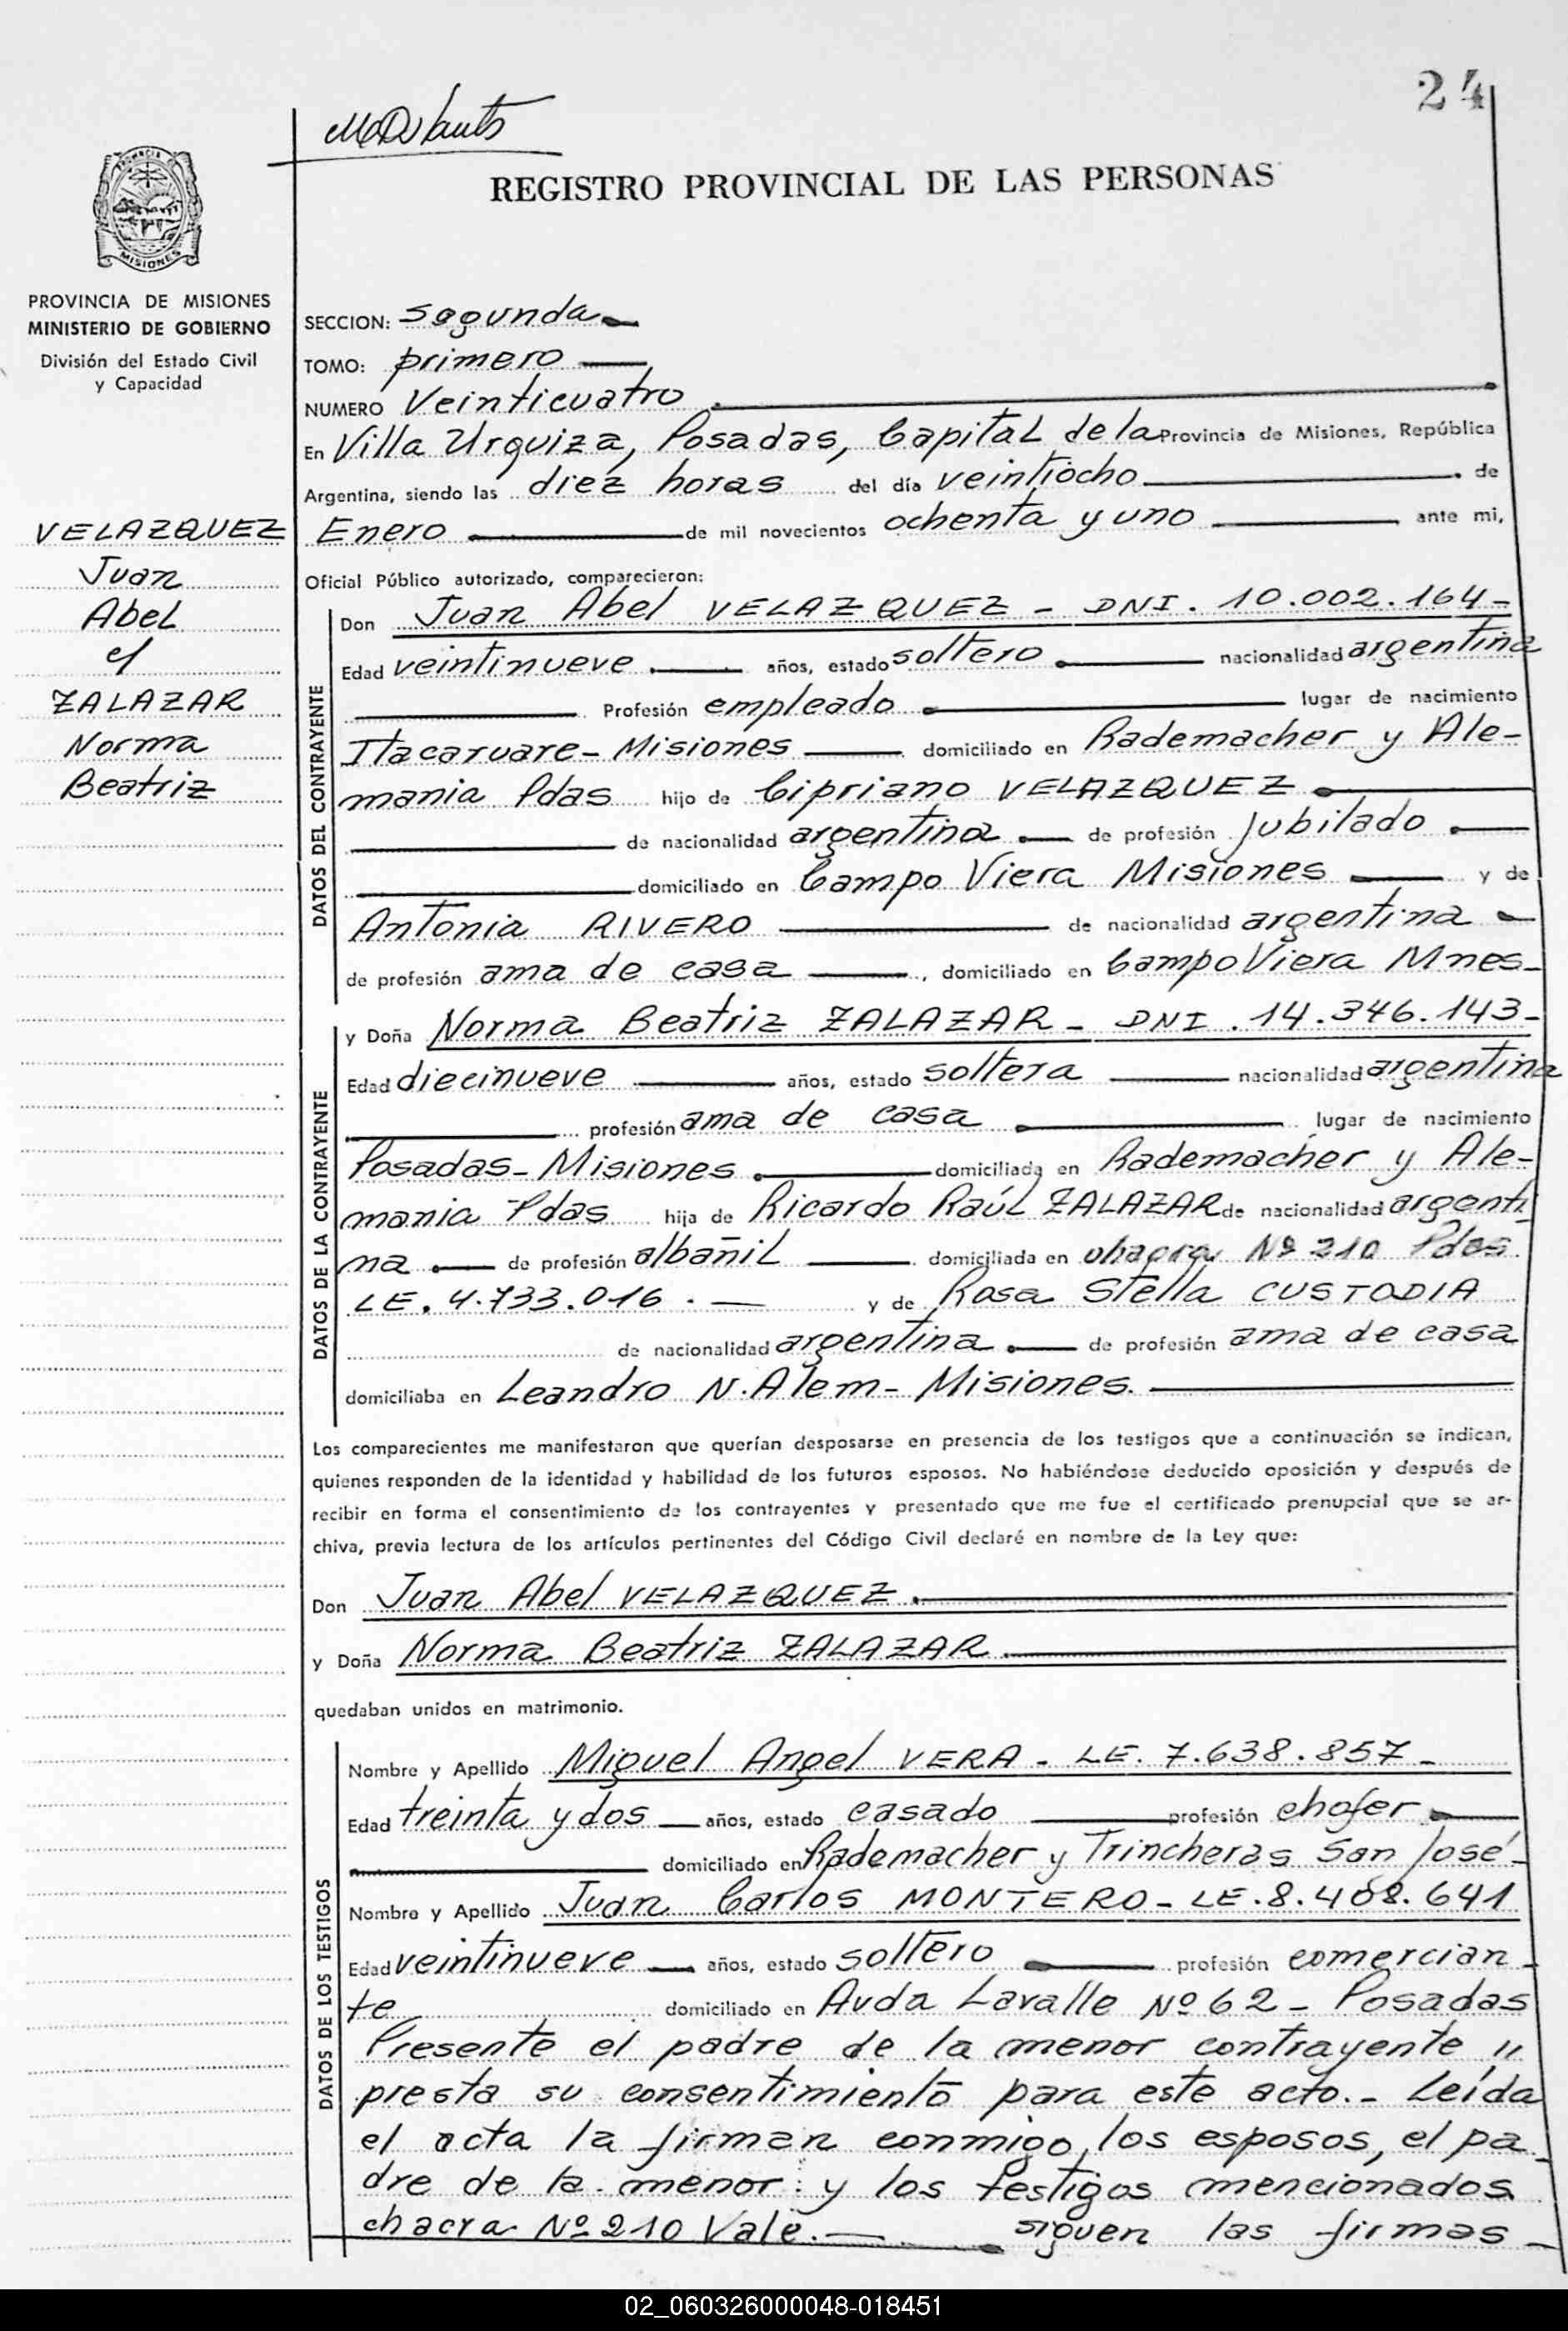 24
REGISTRO PROVINCIAL DE LAS PERSONAS
PROVINCIA DE
MISIONES
PROVINCIA DE MISIONES
MINISTERIO DE GOBIERNO
División del Estado Civil
y Capacidad
VELAZQUEZ
Juan
Abel
c/
ZALAZAR
Norma
Beatriz
SECCION: segunda
TOMO: primero
NUMERO Veinticuatro
En Villa Urquiza, Posadas, Capital de la Provincia de Misiones, República
Argentina, siendo las diez horas del día veintiocho de
Enero de mil novecientos ochenta y uno ante mi,
Oficial Público autorizado, comparecieron:
DATOS DEL CONTRAYENTE
Don Juan Abel VELAZQUEZ - DNI. 10.002.164-
Edad veintinueve años, estado soltero nacionalidad argentina
Profesión empleado lugar de nacimiento
Itacaruare- Misiones domiciliado en Rademacher y Ale-
mania Pdas hijo de Cipriano VELAZQUEZ
de nacionalidad argentina de profesión jubilado
domiciliado en Campo Viera Misiones y de
Antonia RIVERO de nacionalidad argentina
de profesión ama de casa, domiciliado en Campo Viera Mnes-
DATOS DE LA CONTRAYENTE
y Doña Norma Beatriz ZALAZAR - DNI. 14.346.143-
Edad diecinueve años, estado soltera nacionalidad argentina
profesión ama de casa lugar de nacimiento
Posadas- Misiones domiciliada en Rademacher y Ale-
mania Pdas hija de Ricardo Raúl ZALAZAR de nacionalidad argenti-
na de profesión albañil domiciliada en chacra Nº 210 Pdas
LE. 4.733.016. y de Rosa Stella CUSTODIA
de nacionalidad argentina de profesión ama de casa
domiciliaba en Leandro N. Alem- Misiones.
Los comparecientes me manifestaron que querían desposarse en presencia de los testigos que a continuación se indican,
quienes responden de la identidad y habilidad de los futuros esposos. No habiéndose deducido oposición y después de
recibir en forma el consentimiento de los contrayentes y presentado que me fue el certificado prenupcial que se ar-
chiva, previa lectura de los artículos pertinentes del Código Civil declaré en nombre de la Ley que:
Don Juan Abel VELAZQUEZ.
y Doña Norma Beatriz ZALAZAR.
quedaban unidos en matrimonio.
DATOS DE LOS TESTIGOS
Nombre y Apellido Miguel Angel VERA - LE. 7.638.857-
Edad treinta y dos años, estado casado profesión chofer
domiciliado en Rademacher y Trincheras San José-
Nombre y Apellido Juan Carlos MONTERO- LE. 8.408.641
Edad veintinueve años, estado soltero profesión comercian-
te domiciliado en Avda Lavalle Nº 62 - Posadas
Presente el padre de la menor contrayente "
presta su consentimiento para este acto.- Leída
el acta la firman conmigo, los esposos, el pa-
dre de la menor y los testigos mencionados
chacra Nº 210 Vale.- siguen las firmas-
02_060326000048-018451